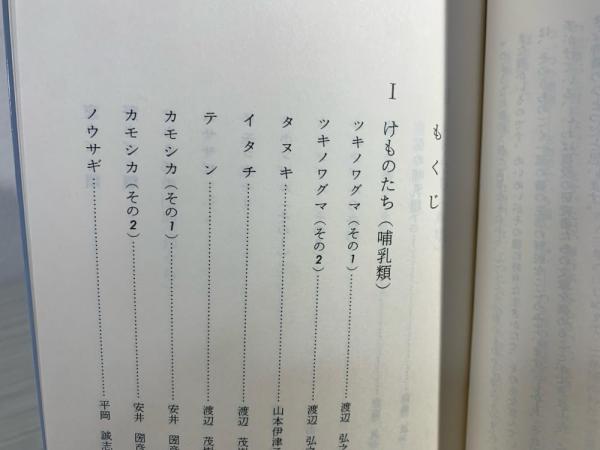 もくじ
I けものたち(哺乳類)
ツキノワグマ(その1)……渡辺 弘之
ツキノワグマ(その2)……渡辺 弘之
タヌキ……山本伊津子
イタチ……渡辺 茂樹
テン……渡辺 茂樹
カモシカ(その1)……安井 圀彦
カモシカ(その2)……安井 圀彦
ノウサギ……平岡 誠志